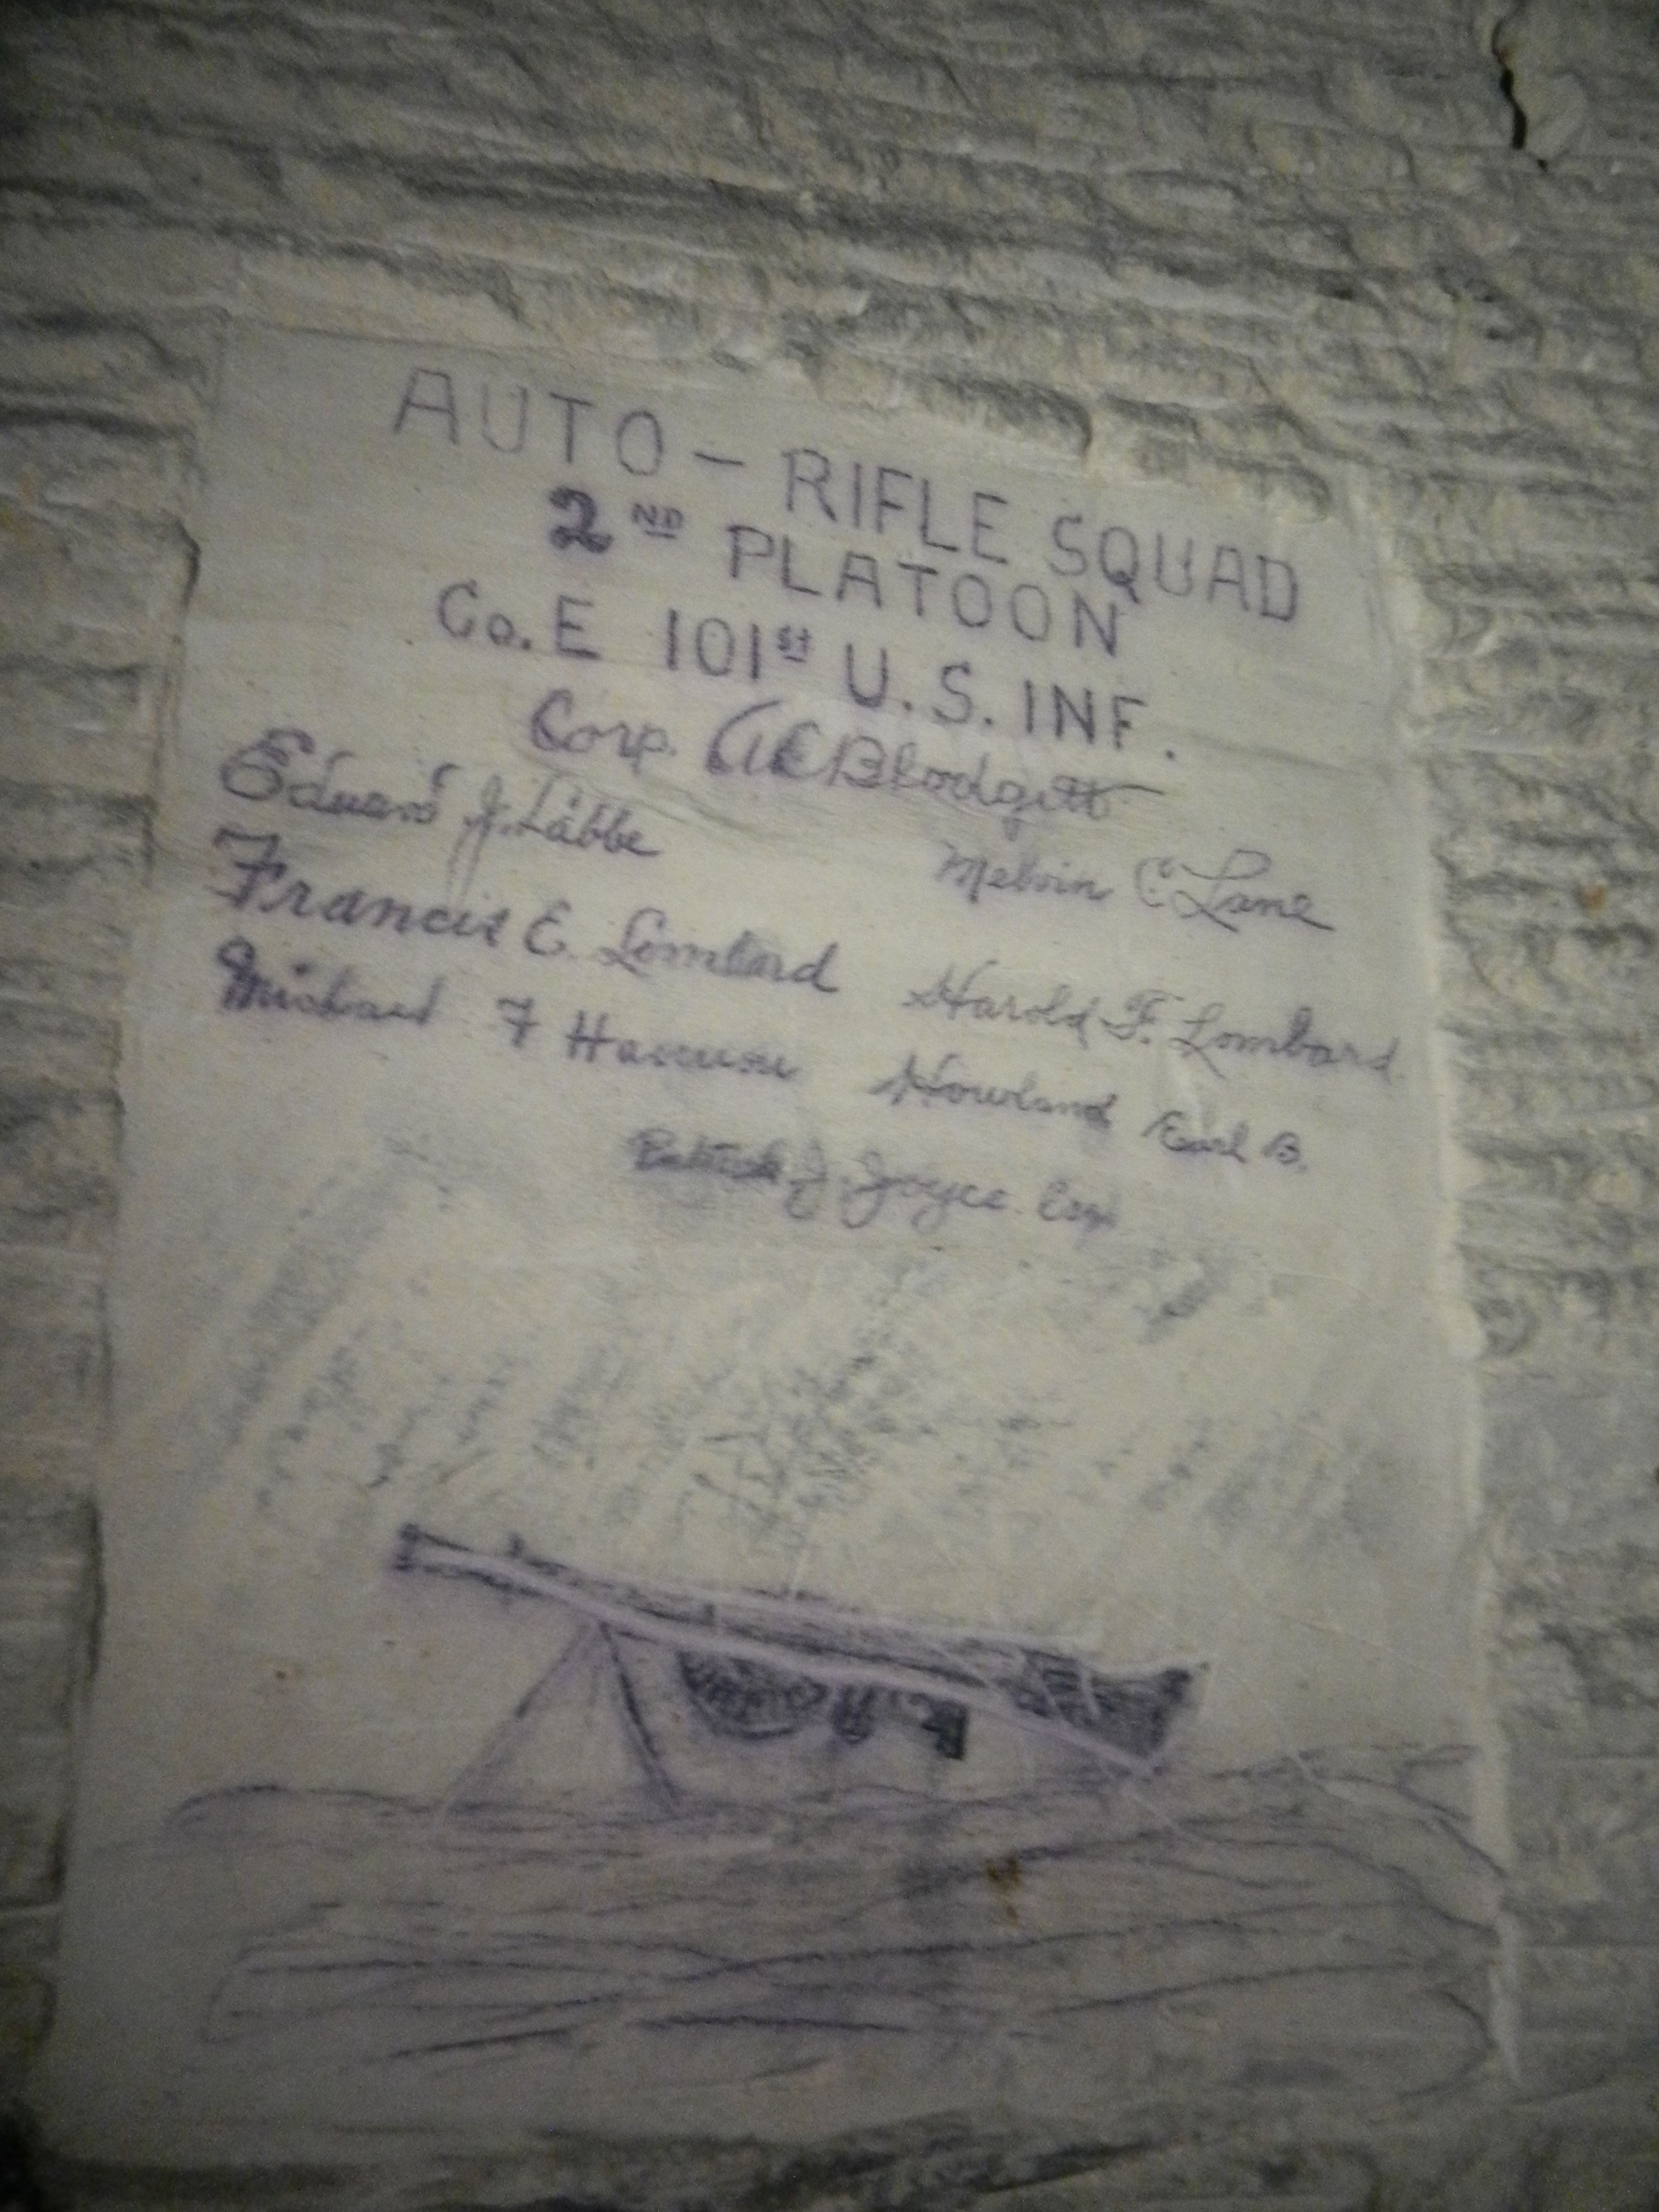 AUTO - RIFLE SQUAD
2ND PLATOON
Co. E 101st U.S. INF.
Corp. Blodgett
Edward J. Labbe
Melvin C Lane
Francis E. Lombard
Harold F. Lombard
Michael F
Howland Earl B.
Patrick J. Joyce Esq